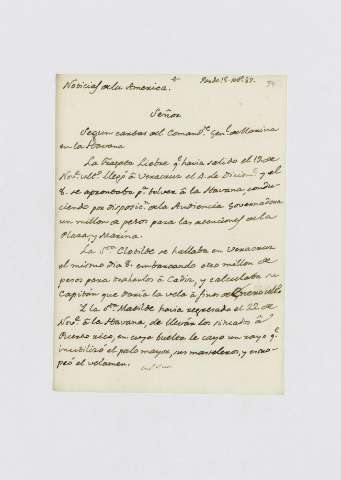 Noticias de la America.
Señor
Segun cartas del Comand.te Gen.l de Marina
en la Havana
La Fragata Liebre q.e havia salido el 19 de
Nov.e ult.o llegó à Veracruz el 4. de Diciem.e y el
8. se aprontaba p.a bolver à la Havana condu-
ciendo por disposic.n de la Audiencia Governadora
un millon de pesos para las atenciones de la
Plaza y Marina.
La Clotilde se hallaba en Veracruz
el mismo dia 8. embarcando otro millon de
pesos para traherlos à Cadiz, y calculaba su
Capitan que daria la vela à fines de
I la Matilde havia regresado el 22 de
Nov.e à la Havana, de llevar los situados à
Puerto rico, en cuyo buelta le cayo un rayo q.e
inutilizó el palo mayor, sus masteleros, y
el velamen.